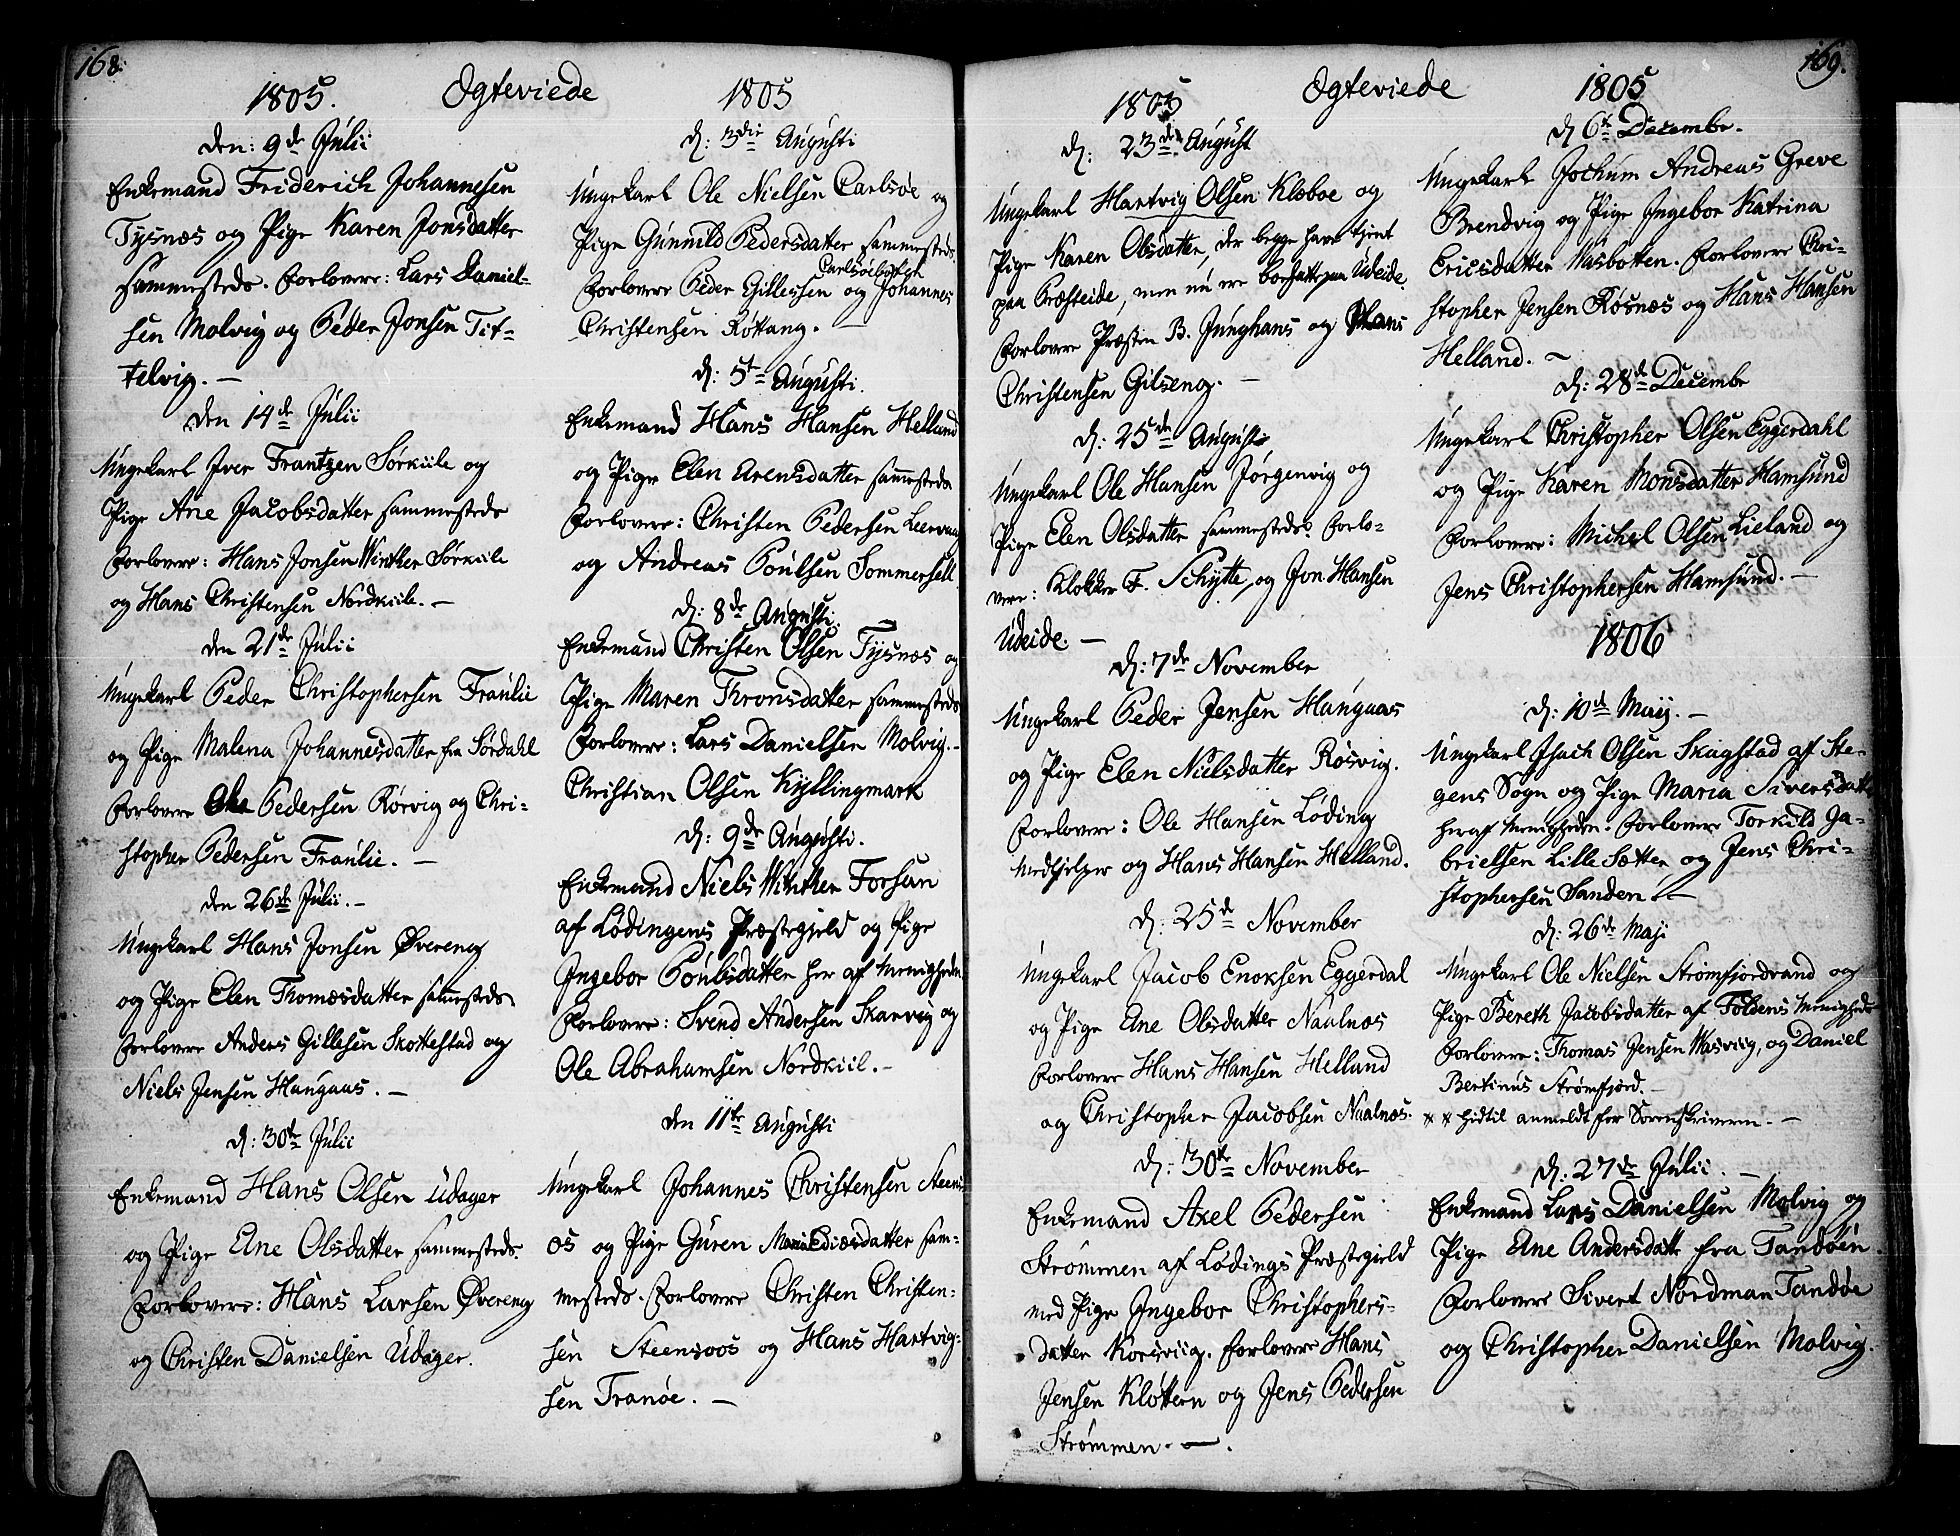 168.
1805. Ogteviede 1805
den: 9de Julii
Enkemand Friderich Johannesen
Tysnæs og Pige Karen Jonsdatter
sammesteds. Forlovere: Lars Daniel-
sen Molvig og Peder Jonsen Tit-
telvig. —
den 14de Julii
Ungekarl Iver Frantzen Sørkiile og
Pige Ane Jacobsdatter sammesteds
Forlovere: Hans Jonsen Winther Sørkiile
og Hans Christensen Nordkiile. —
den 21de Julii
Ungekarl Peder Christophersen Fraulie
og Pige Malena Johannesdatter fra Sørdahl
Forlovere Ole Pedersen Rørvig og Chri-
stopher Pedersen Fraulie. —
den 26de Julii. —
Ungekarl Hans Jonsen Øvereng
og Pige Elen Thomæsdatter sammesteds
Forlovere Anders Gillesen Skottestad og
Niels Jensen Haugaas. —
d: 30te Julii
Enkemand Hans Olsen Udager
og Pige Ane Olsdatter sammesteds
Forlovere: Hans Larsen Øvereng
og Christen Danielsen Udager.
d: 3die Augusti
Ungekarl Ole Nielsen Carlsøe og
Pige Gunnild Pedersdatter sammesteds.
Forlovere Peder Gillessen Carlsøebotten og Johannes
Christensen Røtang. —
d: 5te Augusti.
Enkemand Hans Hansen Helland
og Pige Elen Arensdatter sammesteds
Forlovere: Christen Pedersen Leervaag
og Andreas Poulsen Sommersell
d: 8de Augusti.
Enkemand Christen Olsen Tysnæs og
Pige Maren Thronsdatter sammesteds
Forlovere: Lars Danielsen Molvig. -
Christian Olsen Kyllingmark
d: 9de Augusti.
Enkemand Niels Winther Forsan
af Lødingens Præstegield og Pige
Ingebor Poulsdatter her af Menigheden
Forlovere: Svend Andersen Skarvig og
Ole Abrahamsen Nordkiil. -
den 11te Augusti
Ungekarl Johannes Christensen Steens-
os og Pige Guren datter sam-
mesteds. Forlovere Christen Christen-
sen Steensoos og Hans Hartvig-
sen Tranøe. —
169.
1805 Ogteviede 1805
d: 23de August
Ungekarl Hartvig Olsen Kløboe og
Pige Karen Olsdatter, der begge have tjent
paa Præsteide, men nu ere bosatte paa Udeide.
Forlovere Præsten B. Junghans og Hans
Christensen Gilseng. —
d: 25de Augusti
Ungekarl Ole Hansen Jørgenvig og
Pige Elen Olsdatter sammesteds. Forlo-
vere: Klokker F. Schytte, og Jon Hansen
Udeide. —
d: 7de November
Ungekarl Peder Jensen Haugaas
og Pige Elen Nielsdatter Rosvig.
Forlovere: Ole Hansen Løding
Medhielper og Hans Hansen Helland.
d: 25de November
Ungekarl Jacob Enoksen Eggerdal
og Pige Ane Olsdatter Naalnæs
Forlovere Hans Hansen Helland
og Christopher Jacobsen Naalnæs.
d: 30te November
Enkemand Axel Pedersen
Strømmen af Lødings Præstegield
med Pige Ingebor Christophers-
datter Korsviig. Forlovere Hans
Jensen Kløttern og Jens Pedersen
Strømmen. —.
d. 6te Decembr.
Ungekarl Jochum Andreas Greve
Brendvig og Pige Ingebor Katrina
Ericsdatter Wasbotten. Forlovere Chri-
stopher Jensen Røsnæs og Hans Hansen
Helland. —
d: 28de Decembr
Ungekarl Christopher Olsen Eggerdahl
og Pige Karen Monsdatter Hamsund
Forlovere: Michel Olsen Lieland og
Jens Christophersen Hamsund. —
1806
d: 10de Maij. —
Ungekarl Isach Olsen Skagstad af Ste-
gens Sogn og Pige Maria Siversdatt
heraf Menigheden. Forlovere Torkild Ga-
brielsen Lille Sætter og Jens Chri-
stophersen Sanden. —
d: 26de Maji
Ungekarl Ole Nielsen Strømfjordrand og
Pige Bereth Jacobsdatter af Foldens Menighed
Forlovere: Thomas Jensen Wasviig, og Daniel
Bertinus Strømfjord. —
* * hidtil anmeldt for Sorenskriveren. —
d: 27de Julii. —
Enkemand Lars Danielsen Molvig og
Pige Ane Andersdatt fra Tandøen.
Forlovere Sivert Nordman Tandøe
og Christopher Danielsen Molvig.